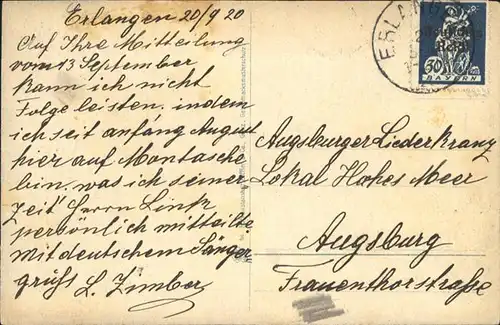 Erlangen 20/9 20
Auf Ihre Mitteilung
vom 13 September
kann ich nicht
Folge leisten. indem
ich seit anfang August
hier auf Montasche
bin. was ich seiner
Zeit Herrn Link
persönlich mitteilte
mit deutschem Sänger
gruss L. Zimber
ERLANG
Deutsches
Reich
30
BAYERN
Augsburger Liederkranz
Lokal Hohes Meer
Augsburg
Frauenthorstraße